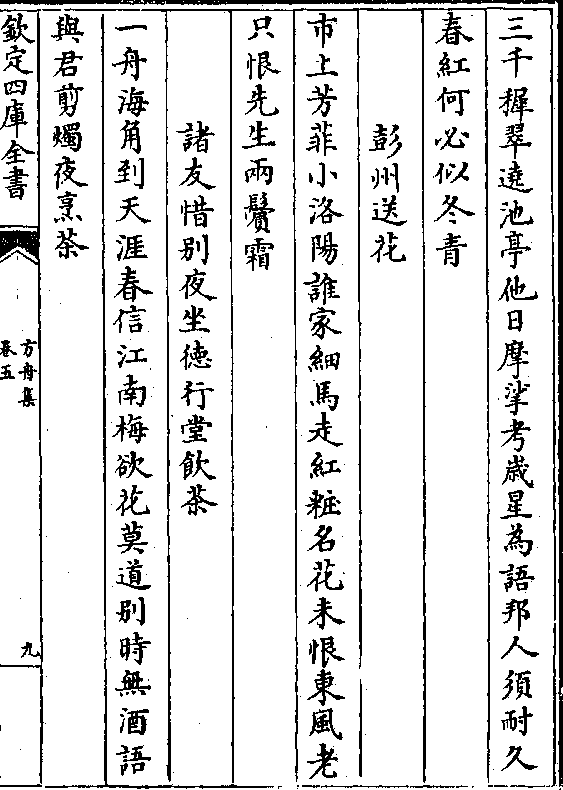 三千摨翠遶池亭他日摩挲考嵗星為語邦人須耐久
春紅何必似冬青
彭州送花
市上芳菲小洛陽誰家細馬走紅粧名花未恨東風老
只恨先生兩鬢霜
諸友惜别夜坐徳行堂飲茶
一舟海角到天涯春信江南梅欲花莫道别時無酒語
與君剪燭夜烹茶
欽定四庫全書
方舟集
卷五
九